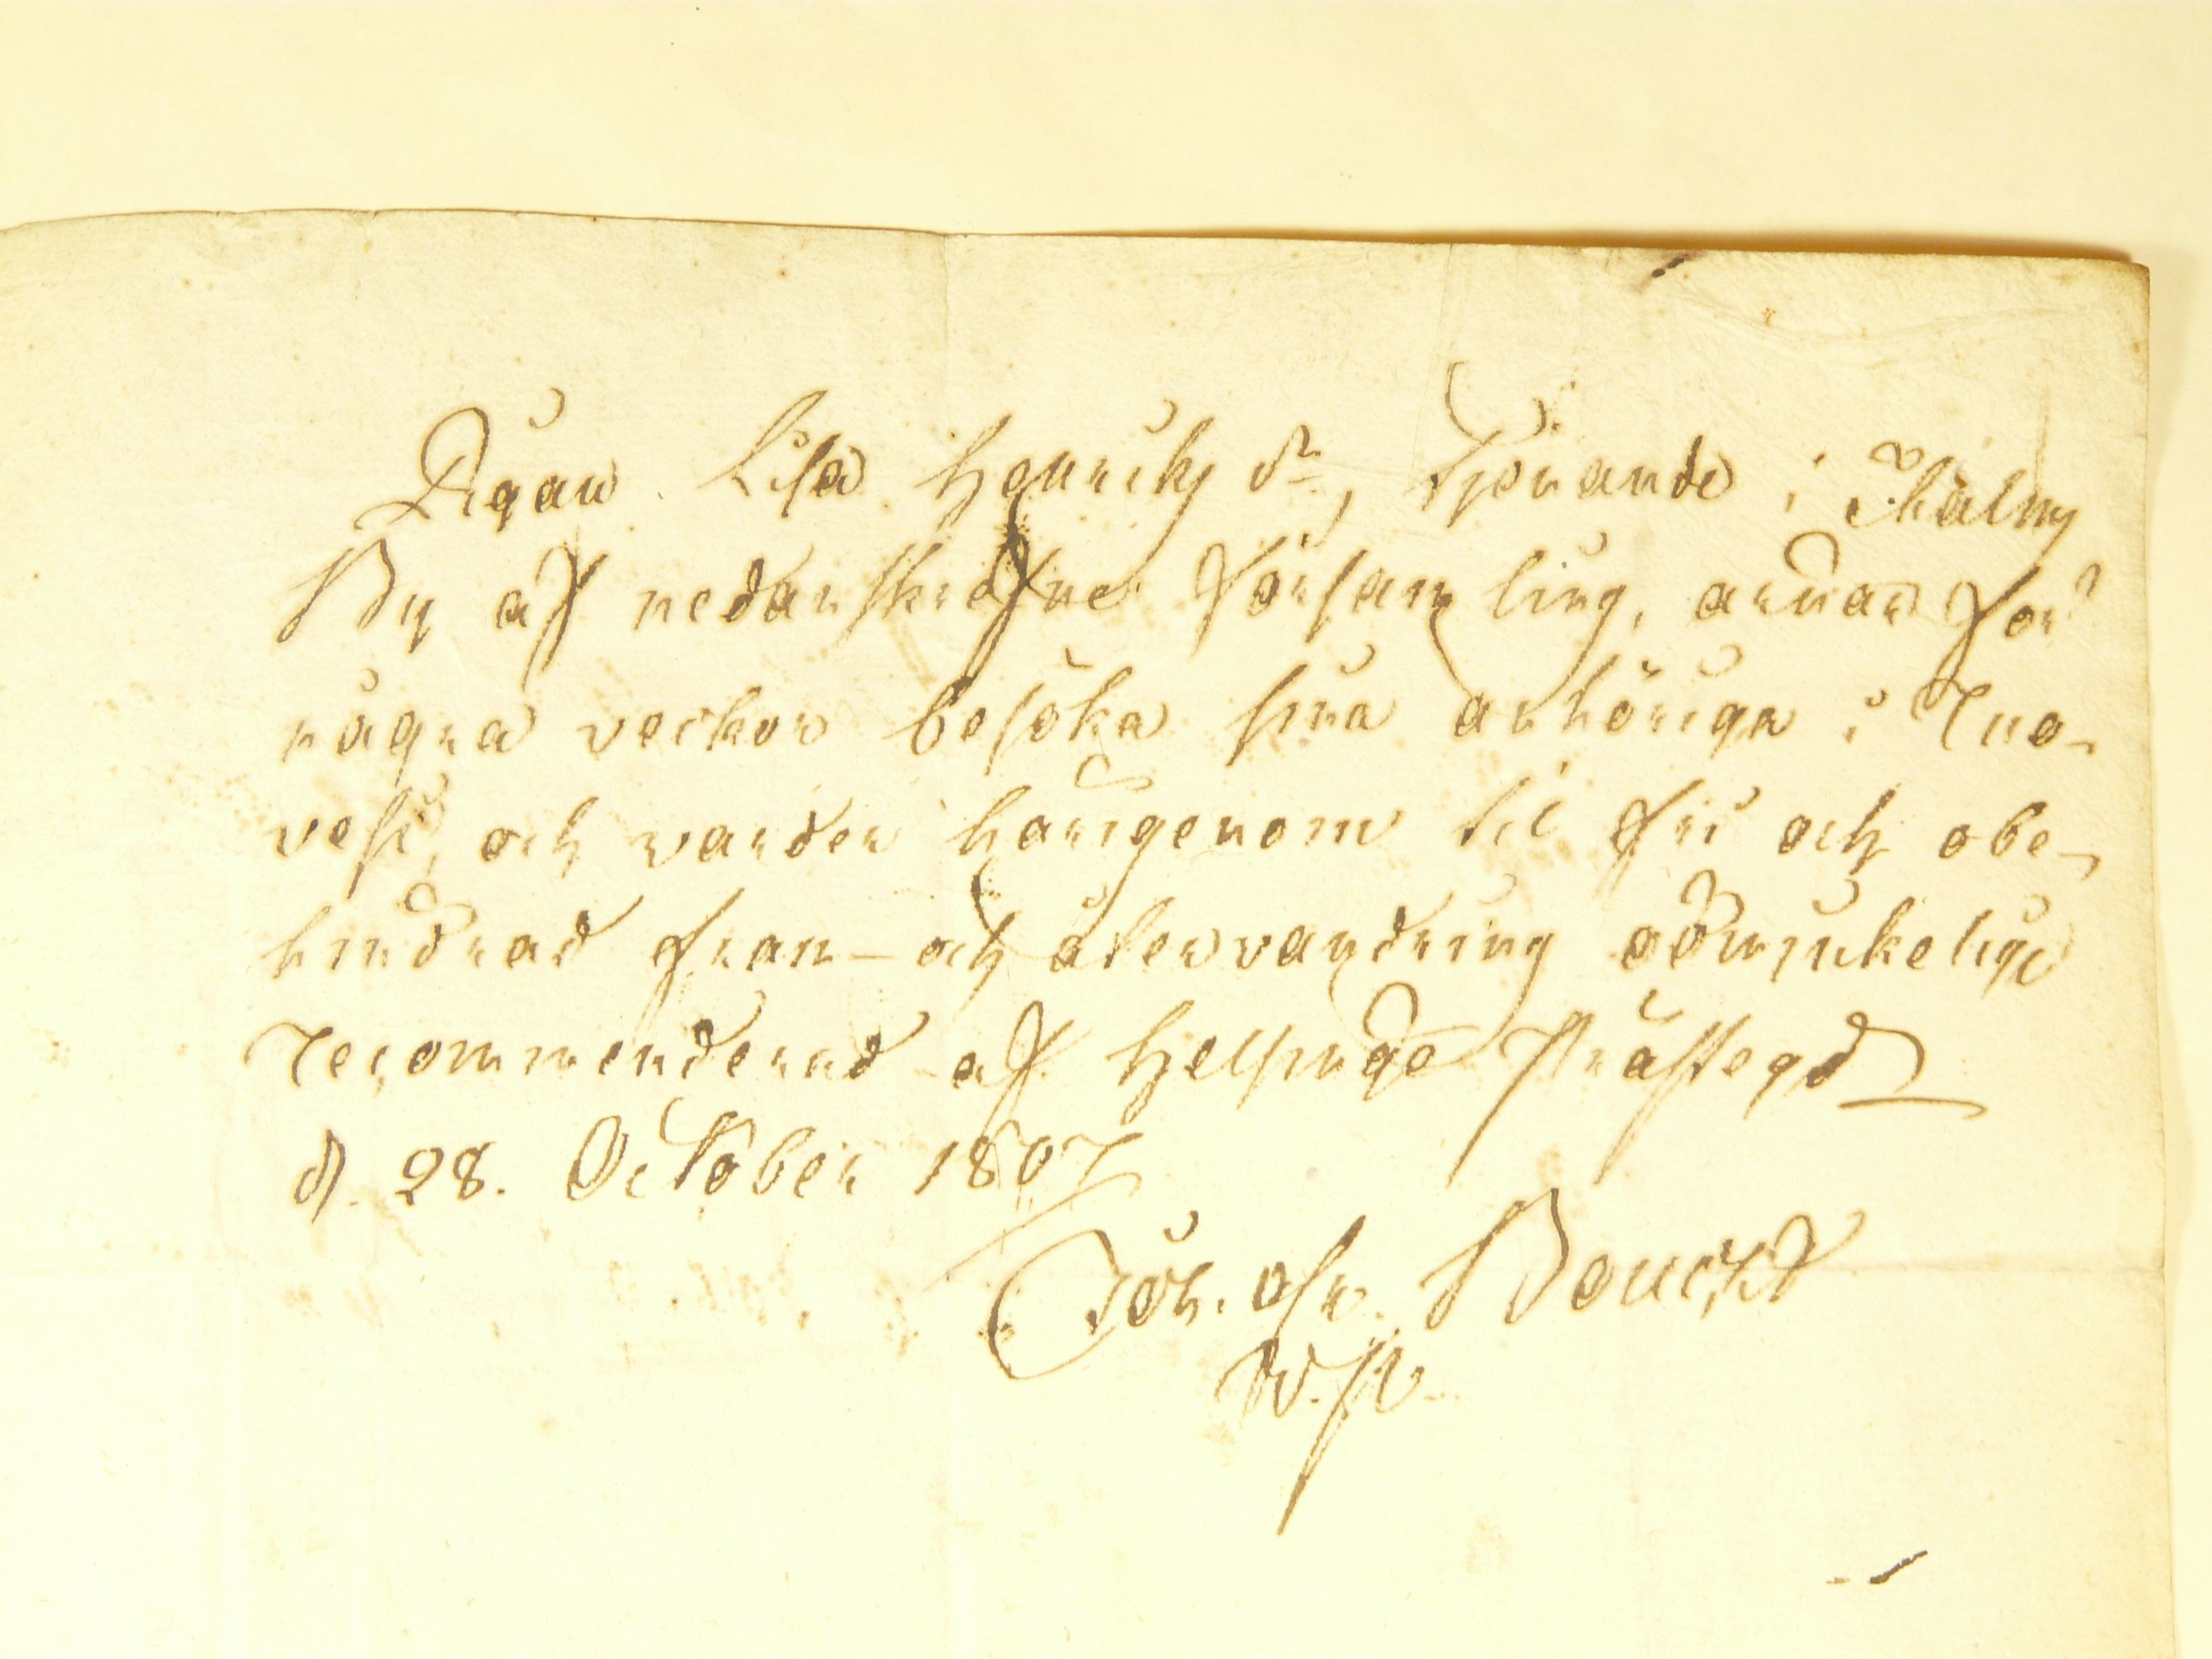 Pigan Lisa Henriks dr, tjenande i Skälmy
By af nedanskrefne Församling, ärnar för
några veckor besöka sina anhöriga i Tuo-
vesi, och varder härigenom til fri och obe-
hindrad fram- och återvandring ödmjukeligen
recommenderad af Helsinge Prästegd
d. 28. October 1807
Joh. Bonsdd